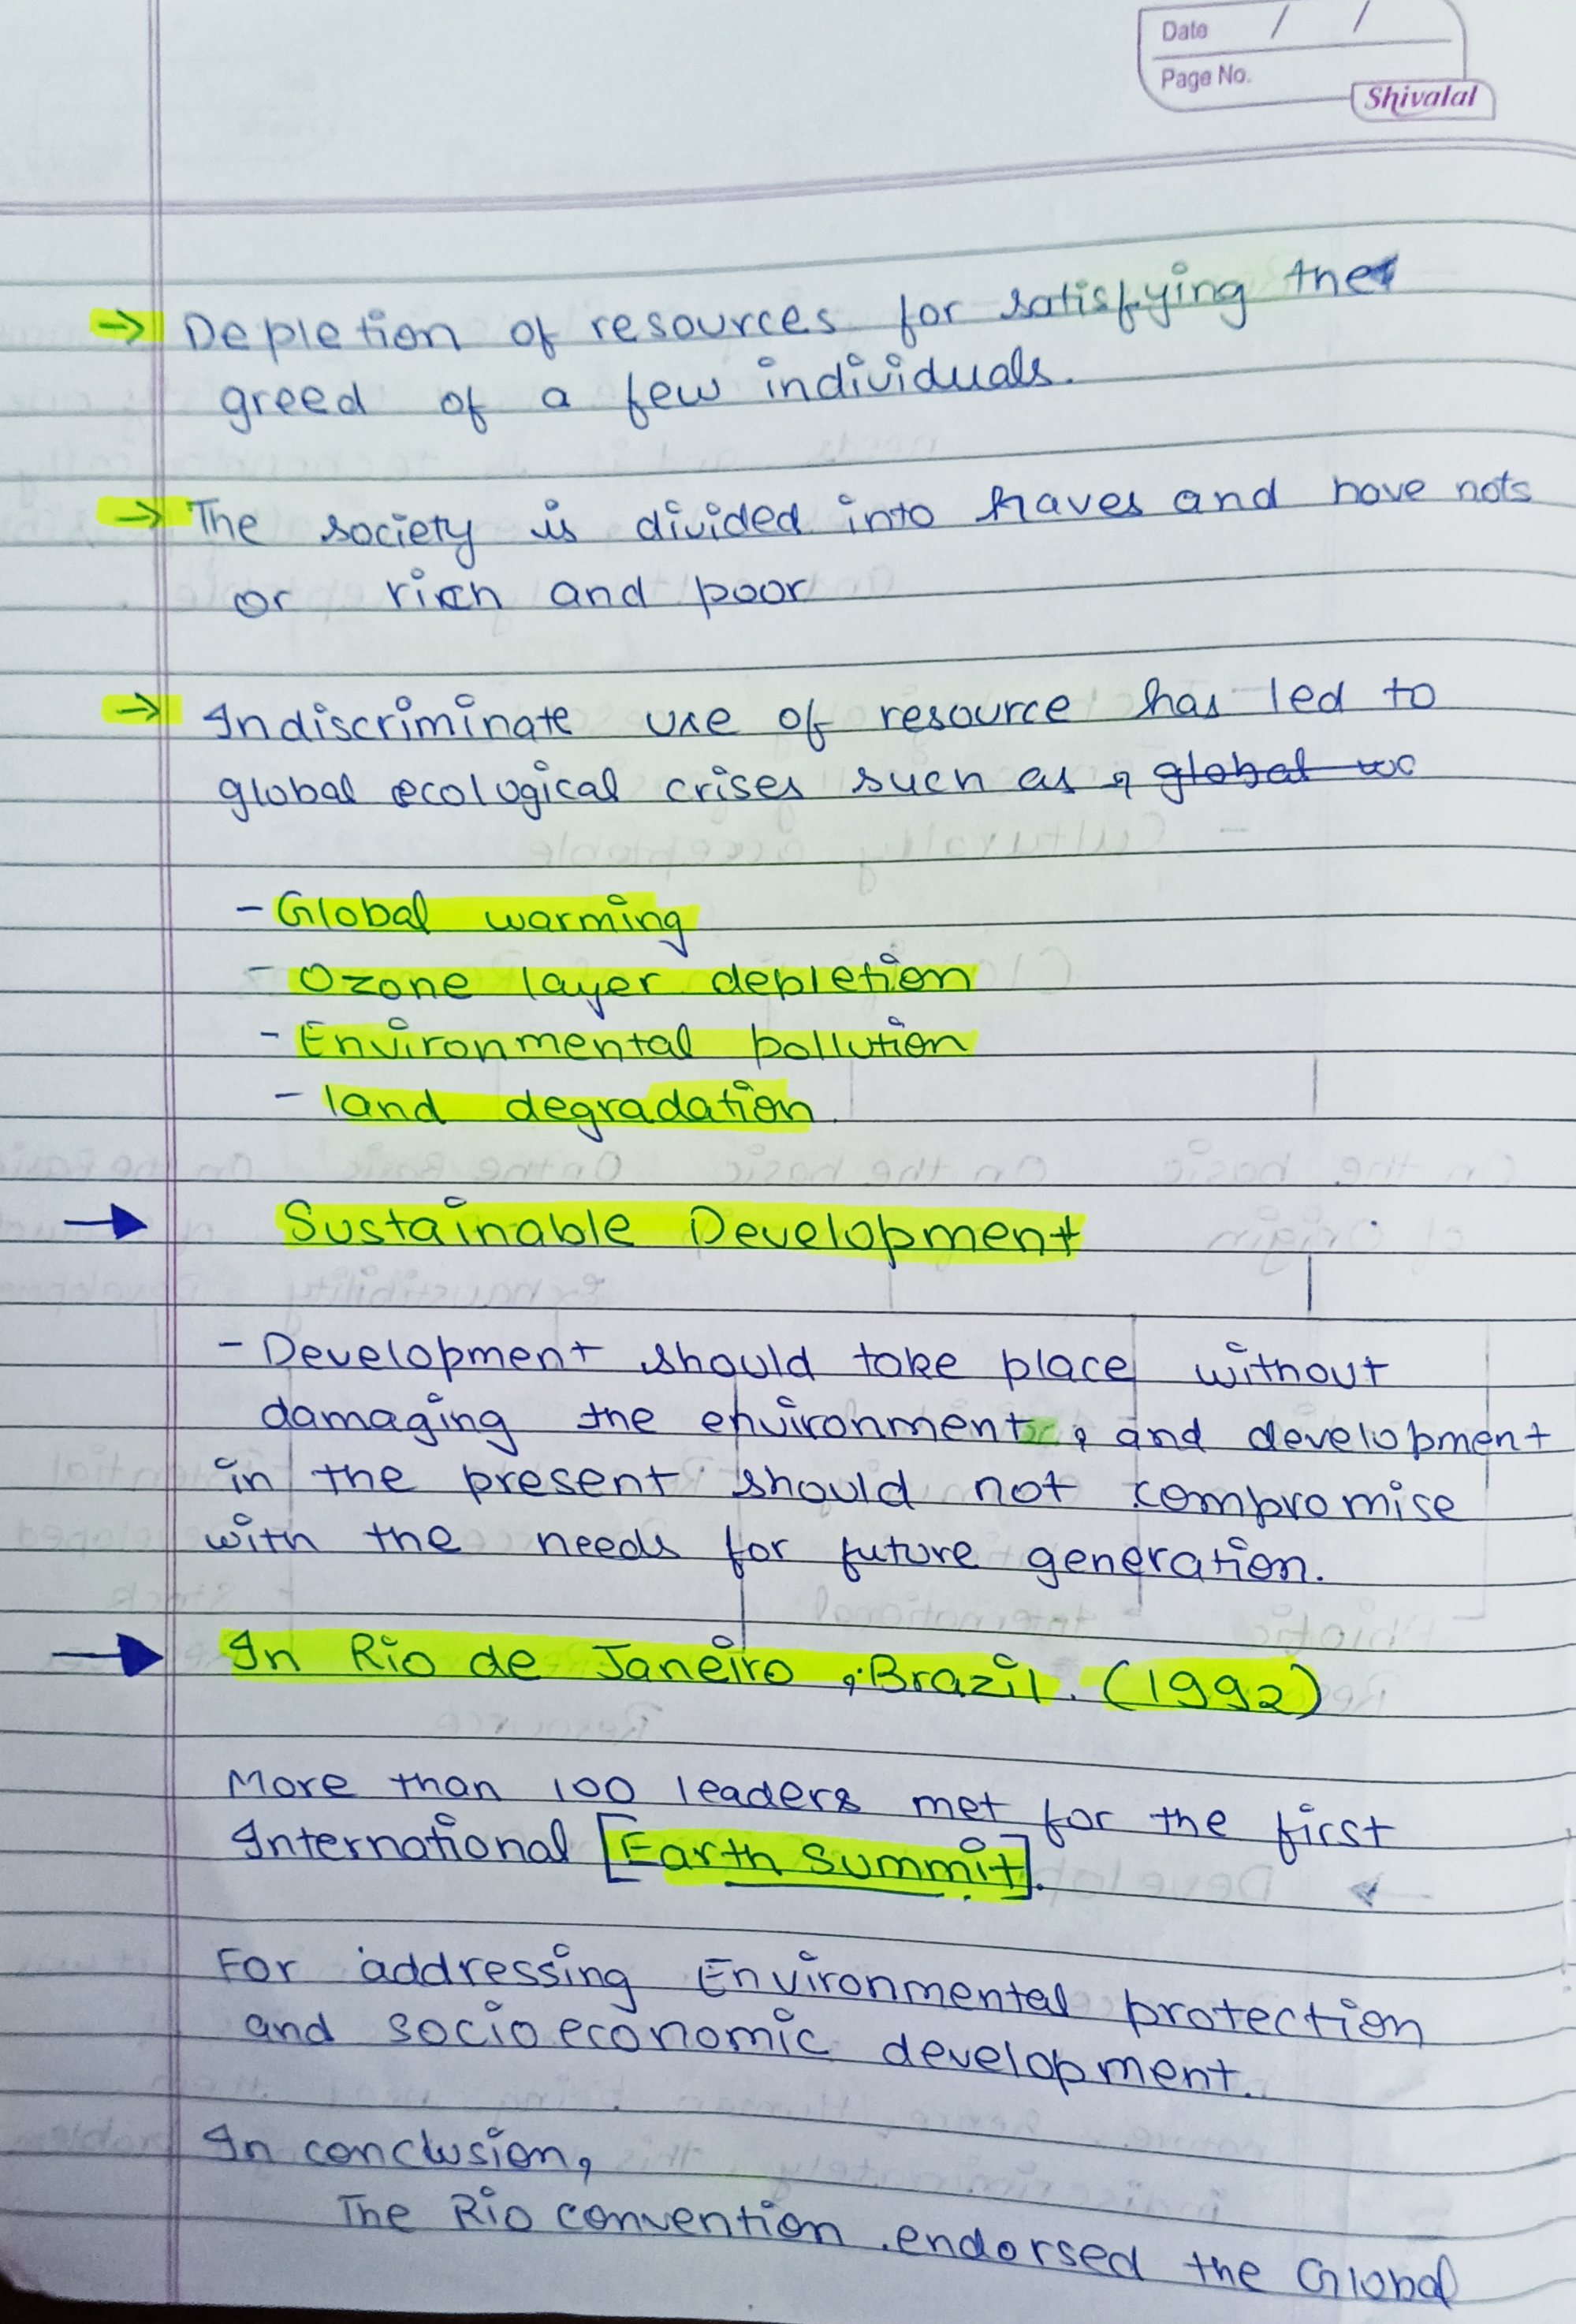 Date / /
Page No.
Shivalal
→ Depletion of resources for satisfying the
greed of a few individuals.
→ The society is divided into haves and have nots
or rich and poor
→ Indiscriminate use of resource has led to
global ecological crises such as , global wa
- Global warming
- Ozone layer depletion
- Environmental pollution
- land degradation.
→ Sustainable Development
- Development should take place without
damaging the environment , and development
in the present should not compromise
with the needs for future generation.
→ In Rio de Janeiro , Brazil. (1992)
More than 100 leaders met for the first
International [Earth Summit].
For addressing Environmental protection
and socioeconomic development.
In conclusion,
The Rio convention endorsed the Global